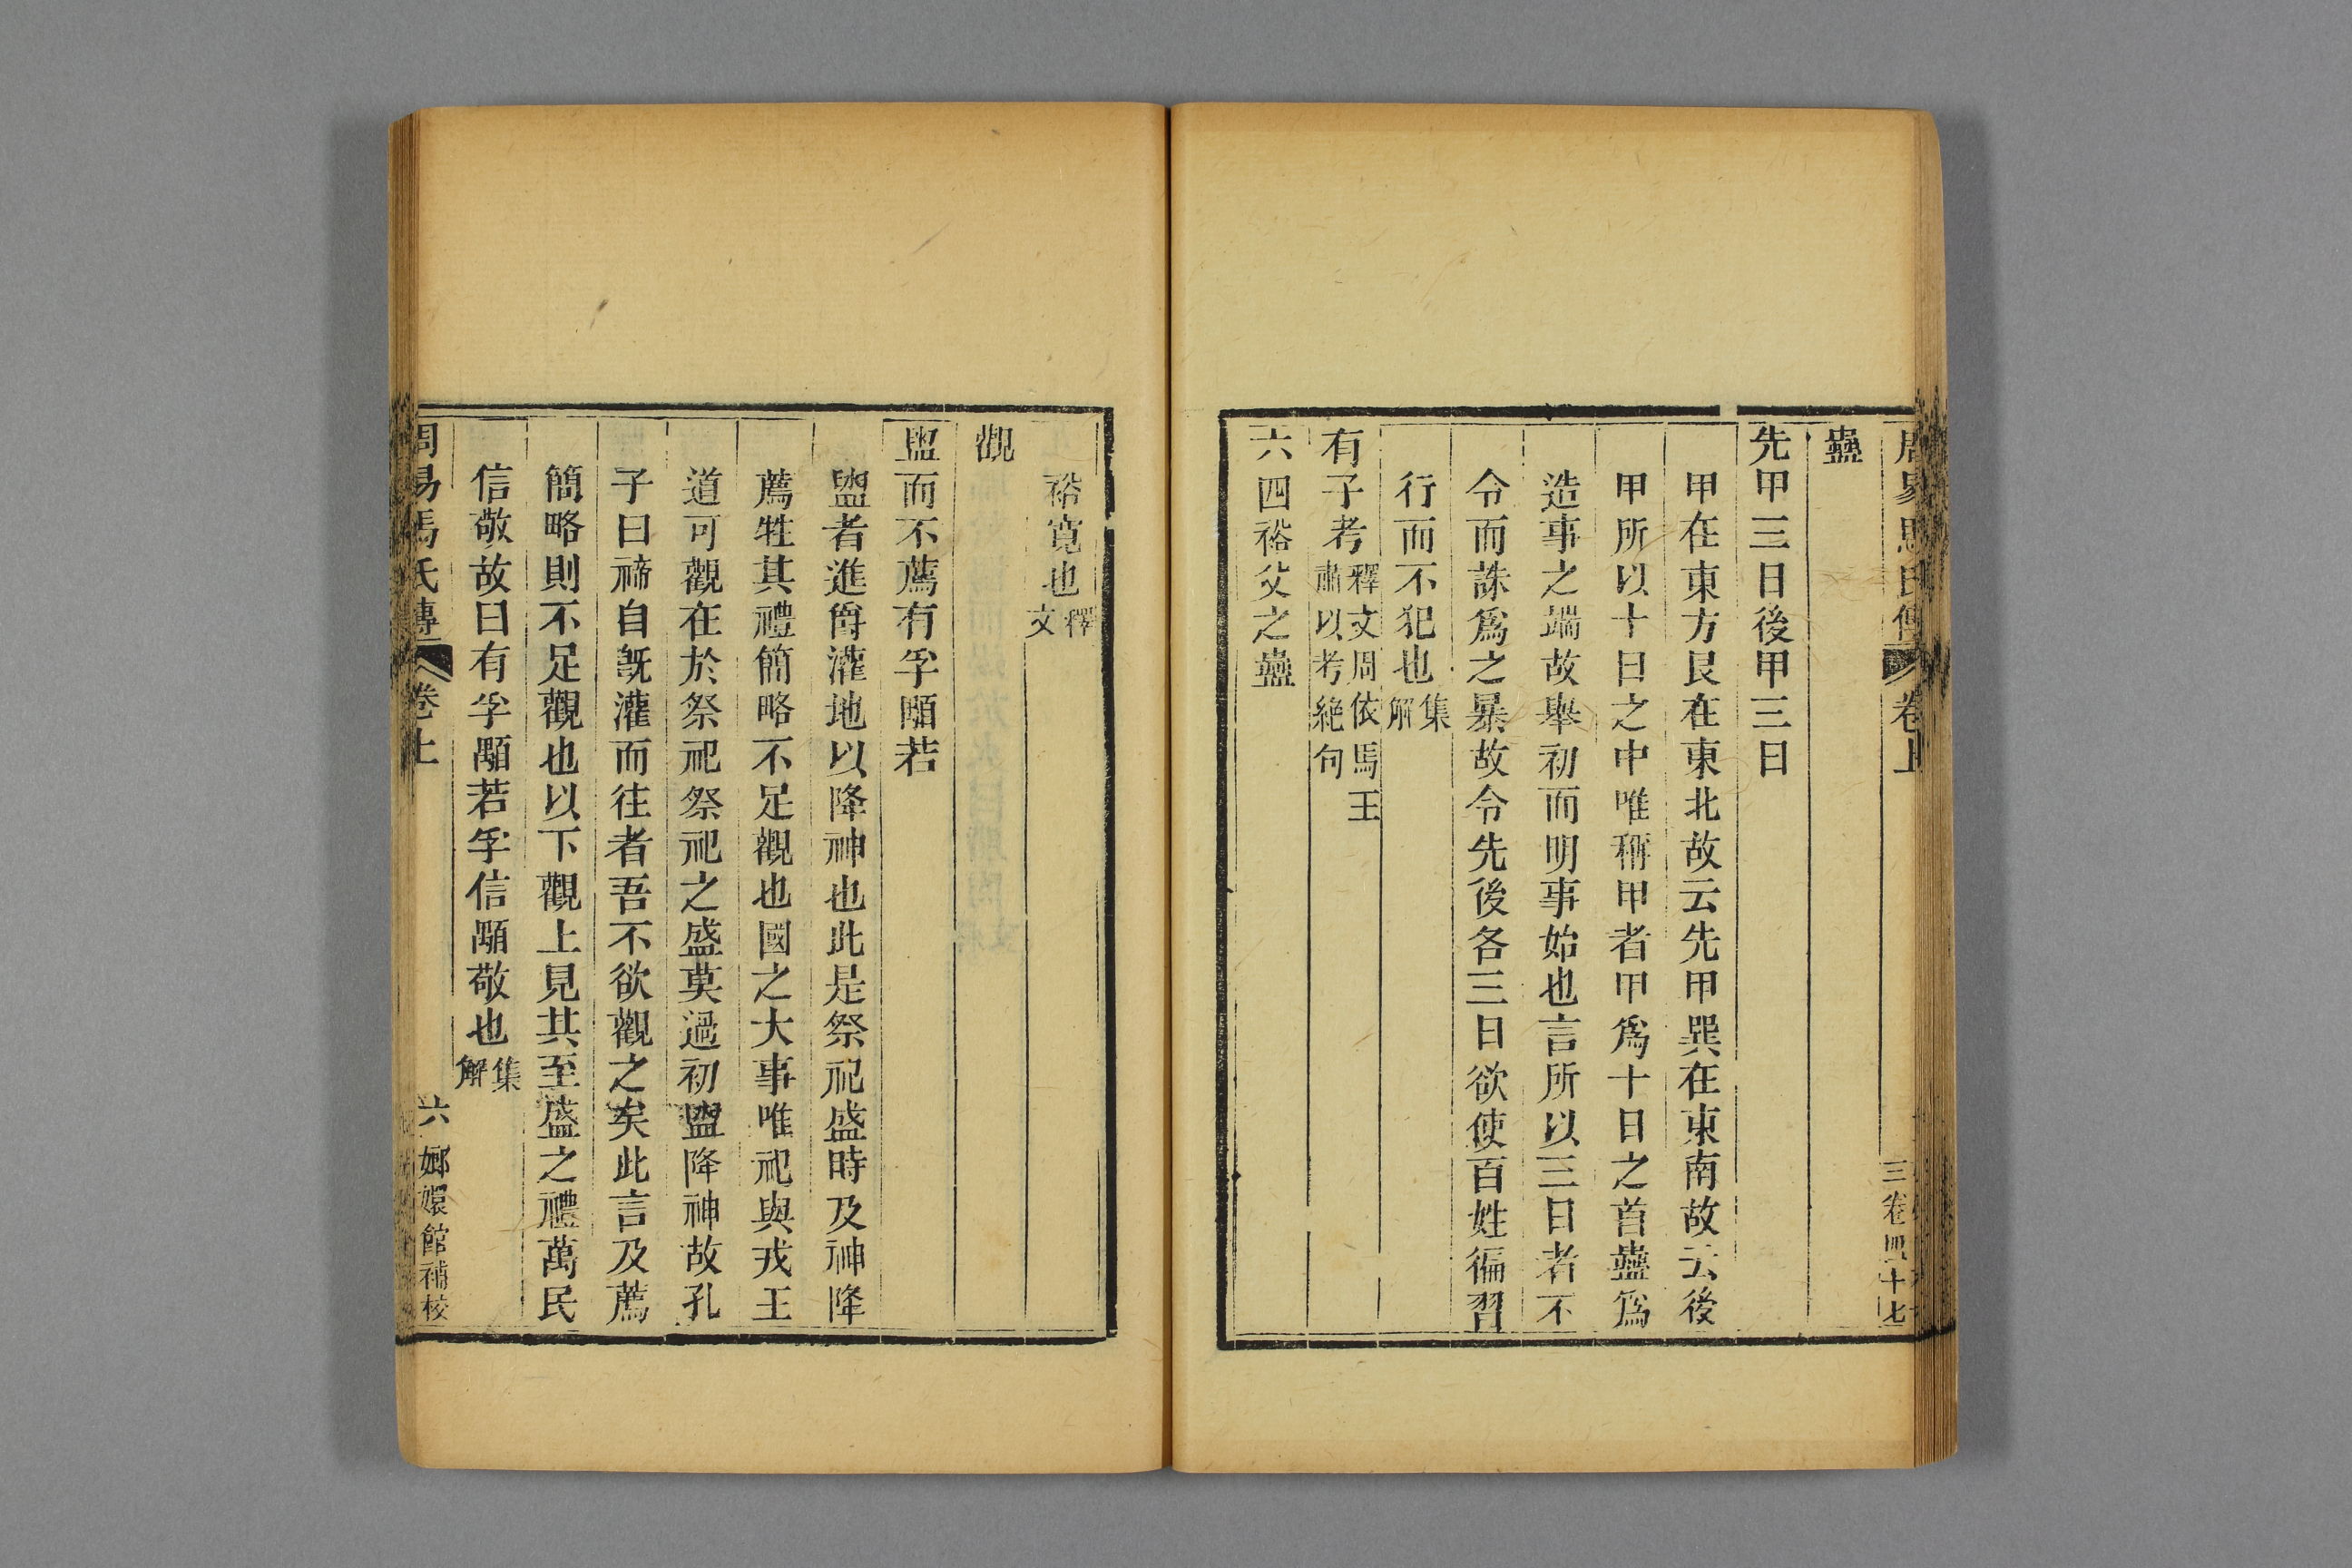 周易馬氏傳 卷上 三卷四十七
蠱
先甲三日後甲三日
甲在東方艮在東北故云先甲巽在東南故云後
甲所以十日之中唯稱甲者甲爲十日之首蠱爲
造事之端故舉初而明事始也言所以三日者不
令而誅爲之暴故令先後各三日欲使百姓徧習
行而不犯也集解
有子考釋文周依馬王肅以考絶句
六四裕父之蠱
裕寬也釋文
觀
盥而不薦有孚顒若
盥者進爵灌地以降神也此是祭祀盛時及神降
薦牲其禮簡略不足觀也國之大事唯祀與戎王
道可觀在於祭祀祭祀之盛莫過初盥降神故孔
子曰禘自旣灌而往者吾不欲觀之矣此言及薦
簡略則不足觀也以下觀上見其至盛之禮萬民
信敬故曰有孚顒若孚信顒敬也集解
周易馬氏傳 卷上 六 嫏嬛館補校